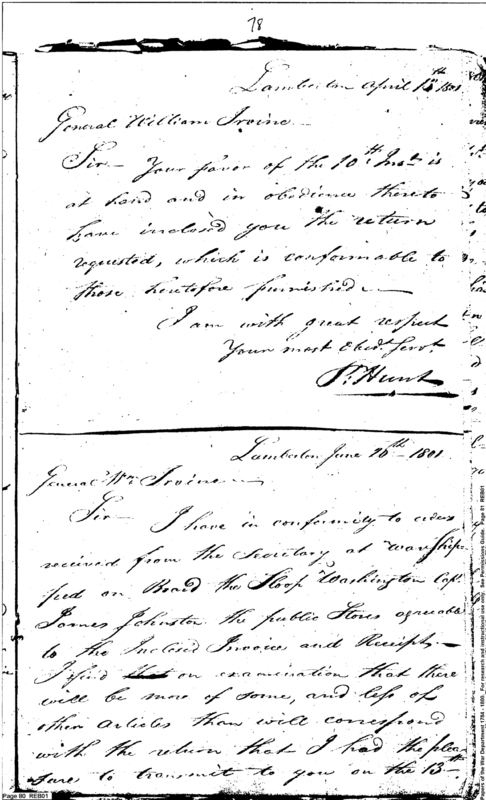 78
Lamberton April 13th 1801
General William Irvine
Sir — Your favor of the 10th Inst. is
at hand and in obedience thereto
have inclosed you the return
requested, which is conformable to
those heretofore furnished —
I am with great respect
Your most Obedt. Servt.
Hunt
Lamberton June 26th 1801
General Wm Irvine
Sir — I have in conformity to orders
received from the Secretary at War Ship-
ped on Board the Sloop Washington Capt.
James Johnston the public Stores agreable
to the Inclosed Invoice and Receipt —
I find on examination that there
will be more of some, and less of
other articles than will correspond
with the return that I had the plea-
sure to transmit to you on the 13th
Page 80 REB01
Papers of the War Department 1784 - 1800. For research and instructional use only. See Permissions Guide. Page 81 REB01